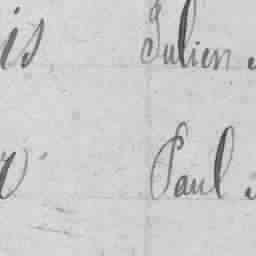 is Julien
Paul